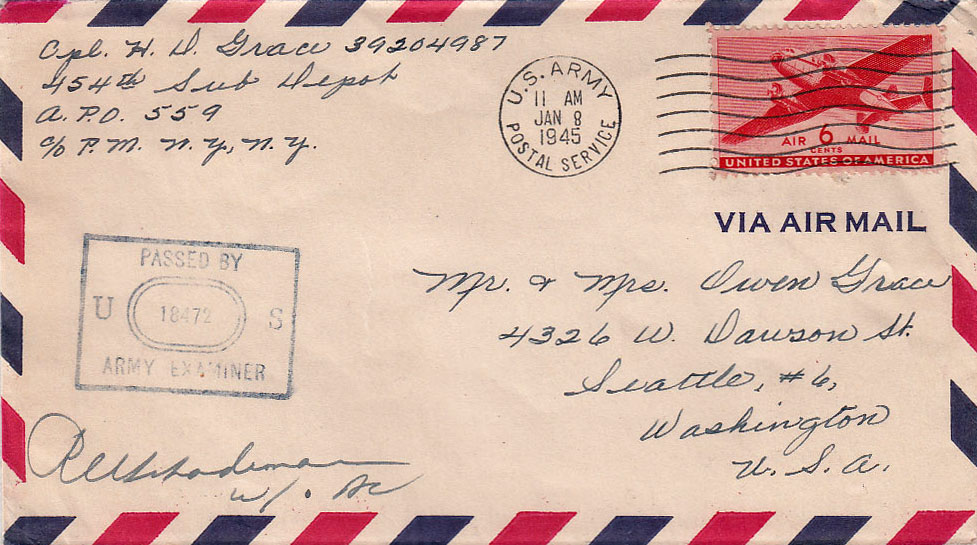 Cpl. H. D. Grace 39204987
454th Sub Depot
A.P.O. 559
c/o P.M. N.Y., N.Y.
U.S. ARMY
11 AM
JAN 8
1945
POSTAL SERVICE
AIR 6 MAIL
CENTS
UNITED STATES OF AMERICA
VIA AIR MAIL
PASSED BY
U 18472 S
ARMY EXAMINER
Mr. & Mrs. Owen Grace
4326 W. Dawson St.
Seattle, #6,
Washington
U.S.A.